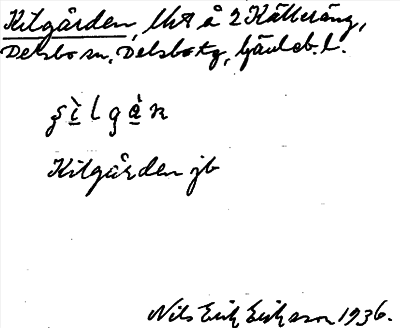 Kilgården, lht å 2 Källeräng,
Delsbo sn, Delsbo tg, Gävleb. l.
Kilgården jb
Nils Erik Eriksson 1936.